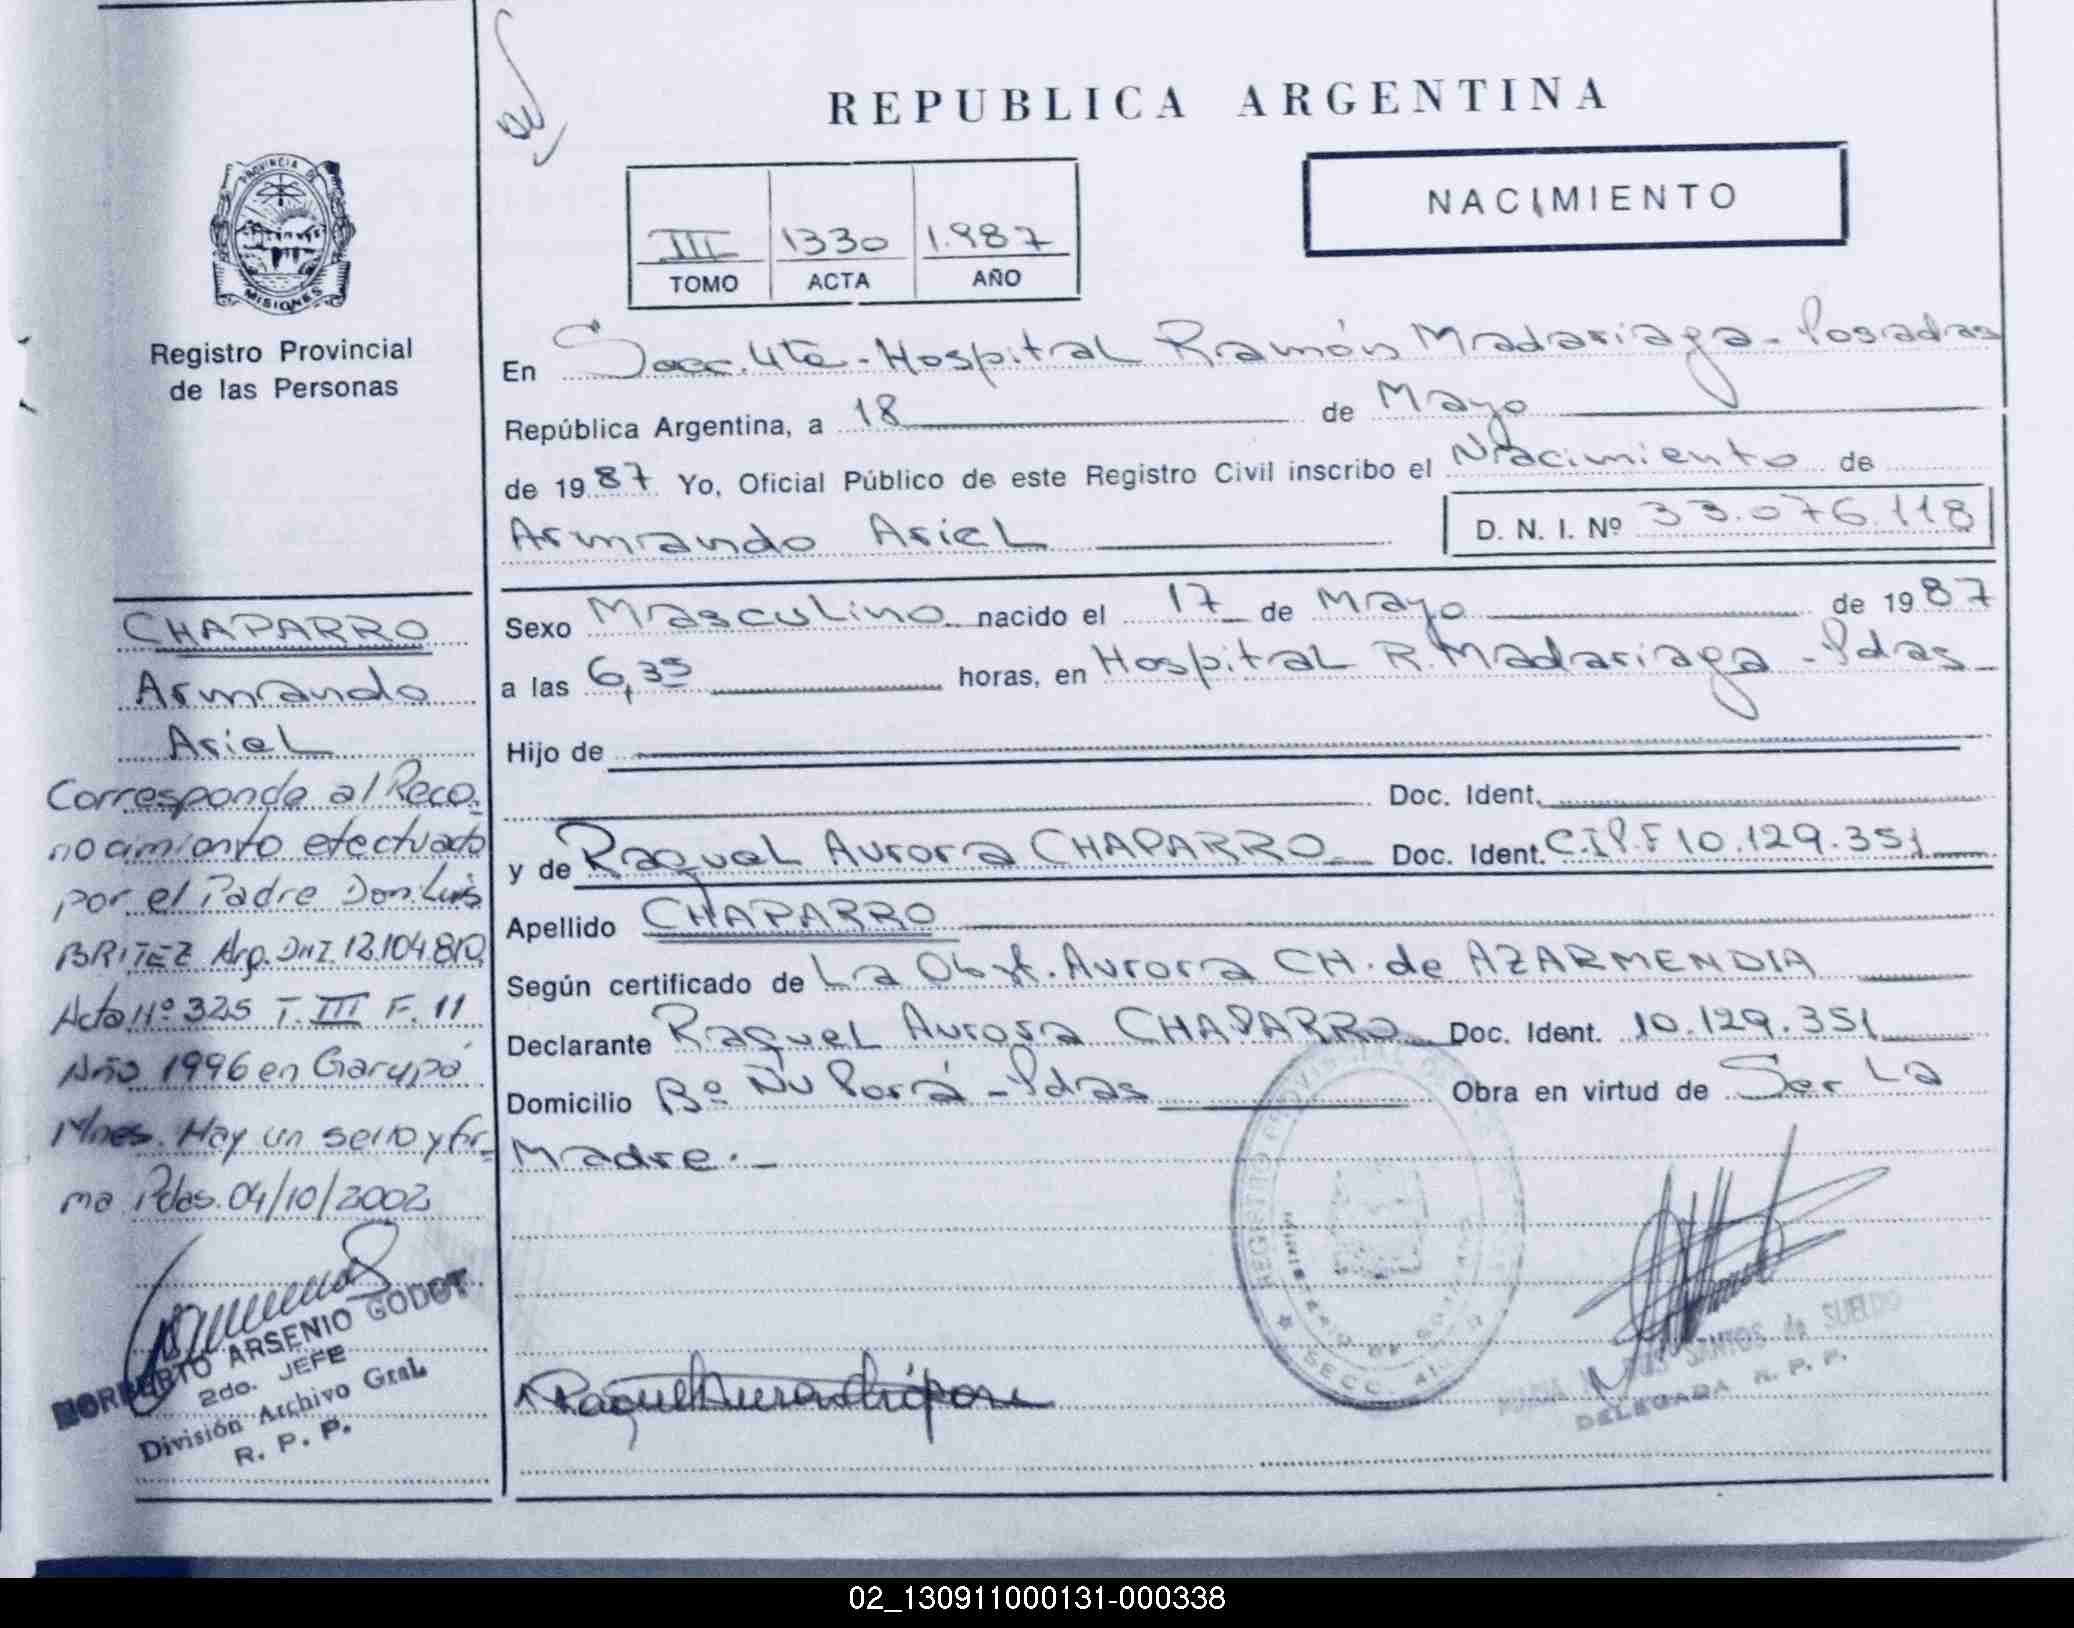 REPUBLICA ARGENTINA
NACIMIENTO
III 1330 1.987
TOMO ACTA AÑO
PROVINCIA DE
MISIONES
Registro Provincial
de las Personas
En Secc. 4ta - Hospital Ramón Madariaga - Posadas
República Argentina, a 18 de Mayo
de 1987 Yo, Oficial Público de este Registro Civil inscribo el Nacimiento de
Armando Ariel D. N. I. Nº 33.076.118
Sexo Masculino nacido el 17 de Mayo de 1987
a las 6,35 horas, en Hospital R. Madariaga - Pdas
Hijo de
Doc. Ident.
y de Raquel Aurora CHAPARRO Doc. Ident. C.I.P.F 10.129.351
Apellido CHAPARRO
Según certificado de La Obst. Aurora CH. de AZARMENDIA
Declarante Raquel Aurora CHAPARRO Doc. Ident. 10.129.351
Domicilio Bº Ñu Porá - Pdas Obra en virtud de Ser La
Madre.-
CHAPARRO
Armando
Ariel
Corresponde al Reco-
nocimiento efectuado
por el Padre Don Luis
BRITEZ Arg. DNI 12.104.810
Acta Nº 325 T. III F. 11
Año 1996 en Garupá
Mnes. Hay un sello y fir-
ma Pdas. 04/10/2002
NORBERTO ARSENIO GODOY
2do. JEFE
División Archivo Gral.
R. P. P.
REGISTRO PROVINCIAL DE
SECC. 4
SANTOS de SUELDO
DELEGADA R. P. P.
02_130911000131-000338